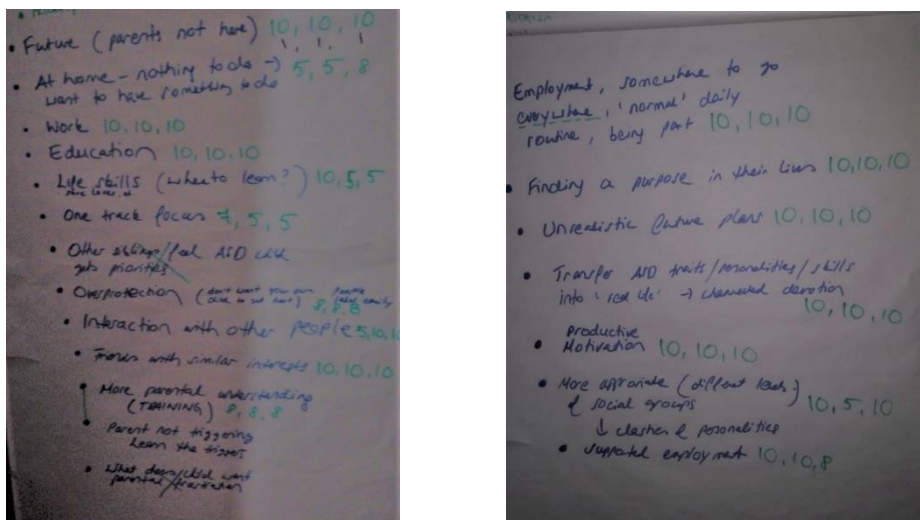 • Future (parents not here) 10, 10, 10
• At home - nothing to do → 5, 5, 8
want to have something to do
• Work 10, 10, 10
• Education 10, 10, 10
• Life skills (where to learn?) 10, 5, 5
• One track focus 7, 5, 5
• Other siblings feel ASD child
gets priorities
• Overprotection (don't want your own
child to get hurt) 8, 8, 8
• Interaction with other people 5, 10, 10
• with similar interests 10, 10, 10
• More parental understanding
(TRAINING) 8, 8, 8
• Parent not triggering
learn the triggers
• What does child want
parental
Employment, somewhere to go
everywhere, 'normal' daily
routine, being part 10, 10, 10
• Finding a purpose in their lives 10, 10, 10
• Unrealistic future plans 10, 10, 10
• Transfer ASD traits/personalities/skills
into 'real life' → devotion
10, 10, 10
Productive
• Motivation 10, 10, 10
• More (different levels)
social groups 10, 5, 10
↓ clashes personalities
• supported employment 10, 10, 8